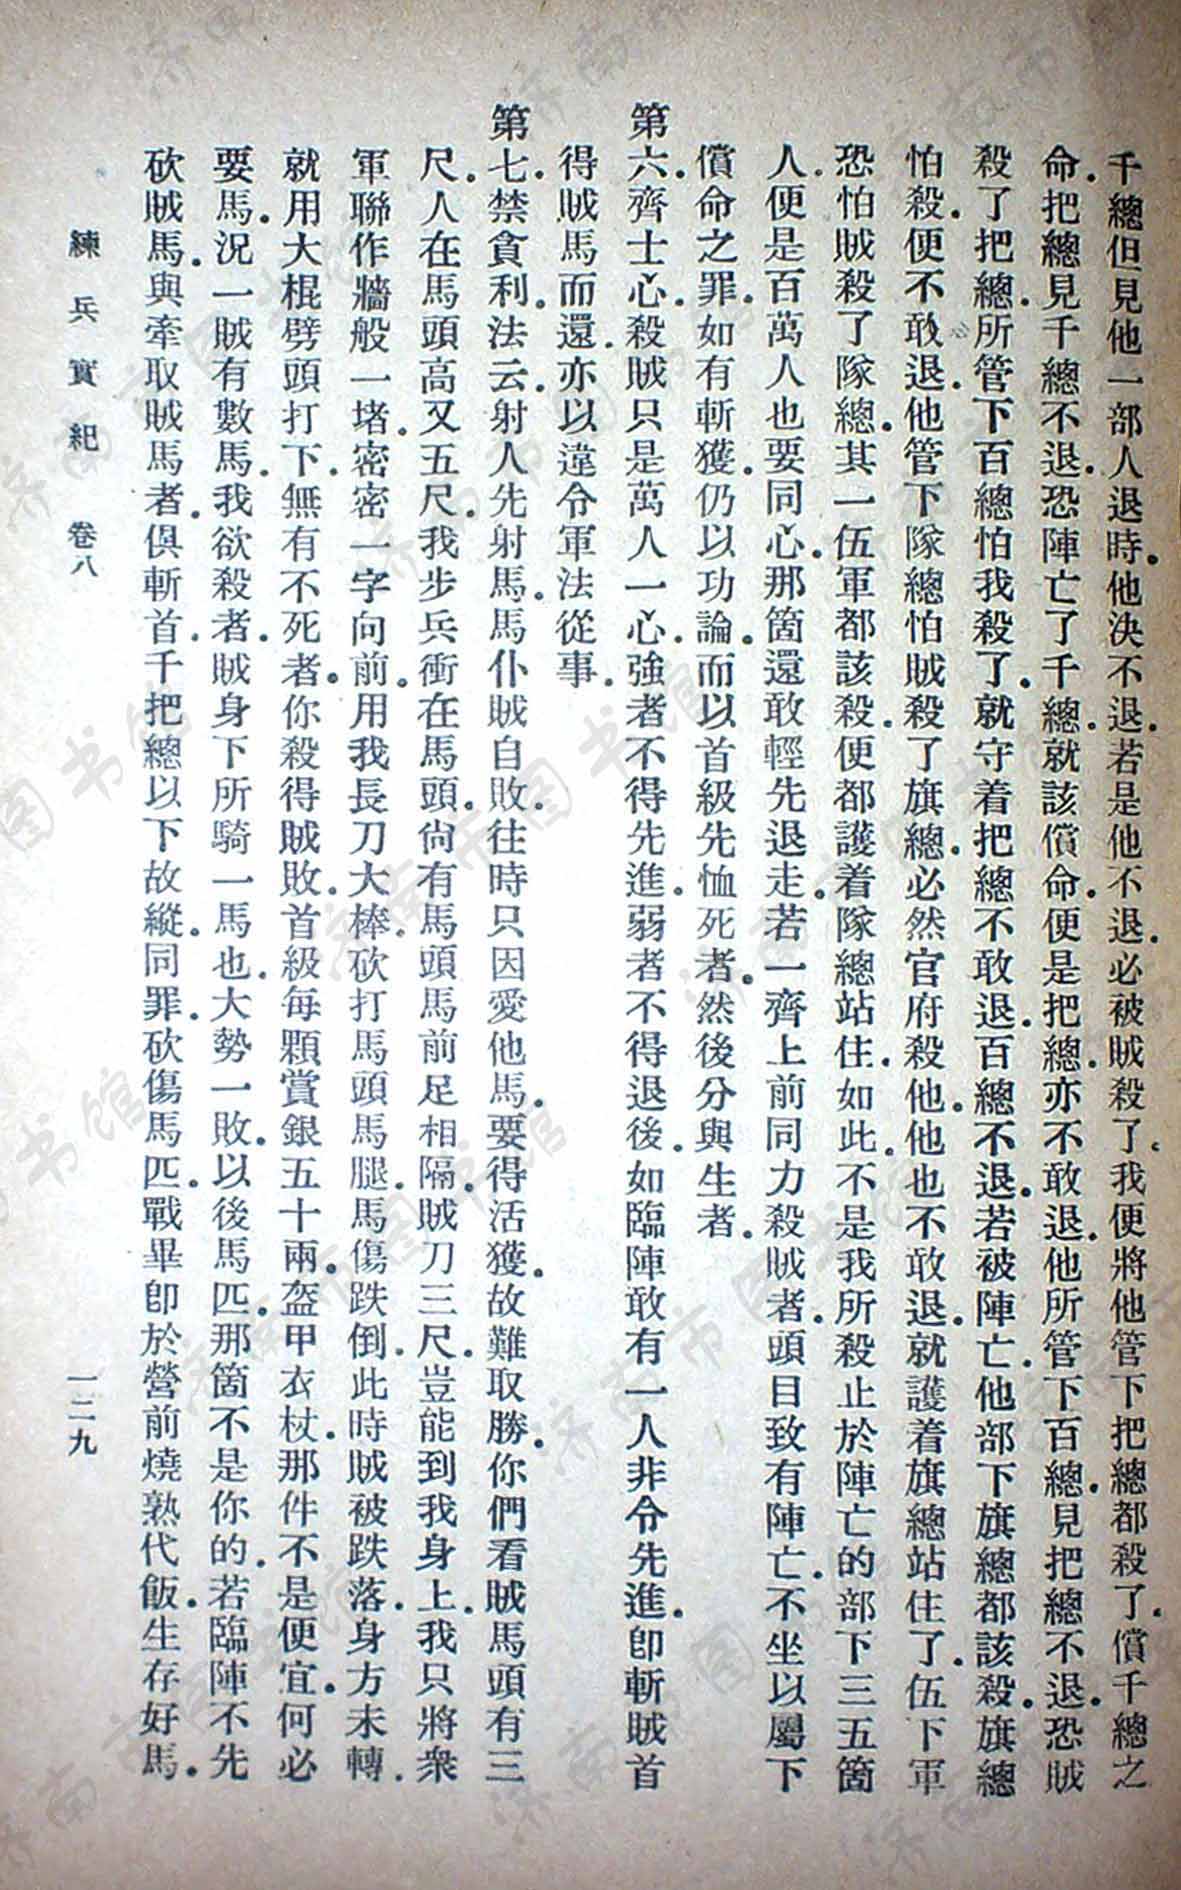 千總但見他一部人退時。他決不退。若是他不退。必被賊殺了。我便將他管下把總都殺了。償千總之
命。把總見千總不退。恐陣亡了千總。就該償命。便是把總。亦不敢退。他所管下百總。見把總不退。恐賊
殺了把總。所管下百總怕我殺了。就守着把總不敢退。百總不退。若被陣亡。他部下旗總都該殺。旗總
怕殺。便不敢退。他管下隊總怕賊殺了旗總。必然官府殺他。他也不敢退。就護着旗總站住了。伍下軍
恐怕賊殺了隊總。其一伍軍都該殺。便都護着隊總站住。如此。不是我所殺止於陣亡的部下三五箇
人。便是百萬人也要同心。那箇還敢輕先退走。若一齊上前同力殺賊者。頭目致有陣亡。不坐以屬下
償命之罪。如有斬獲。仍以功論。而以首級先恤死者。然後分與生者。
第六。齊士心。殺賊只是萬人一心。強者不得先進。弱者不得退後。如臨陣敢有一人非令先進。卽斬賊首
得賊馬而還。亦以違令軍法從事。
第七。禁貪利。法云。射人先射馬。馬仆賊自敗。往時只因愛他馬。要得活獲。故難取勝。你們看賊馬頭有三
尺。人在馬頭高又五尺。我步兵衝在馬頭。尙有馬頭馬前足相隔。賊刀三尺。豈能到我身上。我只將衆
軍聯作牆般一堵。密密一字向前。用我長刀大棒。砍打馬頭馬腿。馬傷跌倒。此時賊被跌落。身方未轉。
就用大棍劈頭打下。無有不死者。你殺得賊敗。首級每顆賞銀五十兩。盔甲衣杖。那件不是便宜。何必
要馬。況一賊有數馬。我欲殺者。賊身下所騎一馬也。大勢一敗。以後馬匹。那箇不是你的。若臨陣不先
砍賊馬。與牽取賊馬者。俱斬首。千把總以下故縱。同罪。砍傷馬匹。戰畢卽於營前燒熟代飯。生存好馬。
練兵實紀 卷八 一二九
济南市图书馆